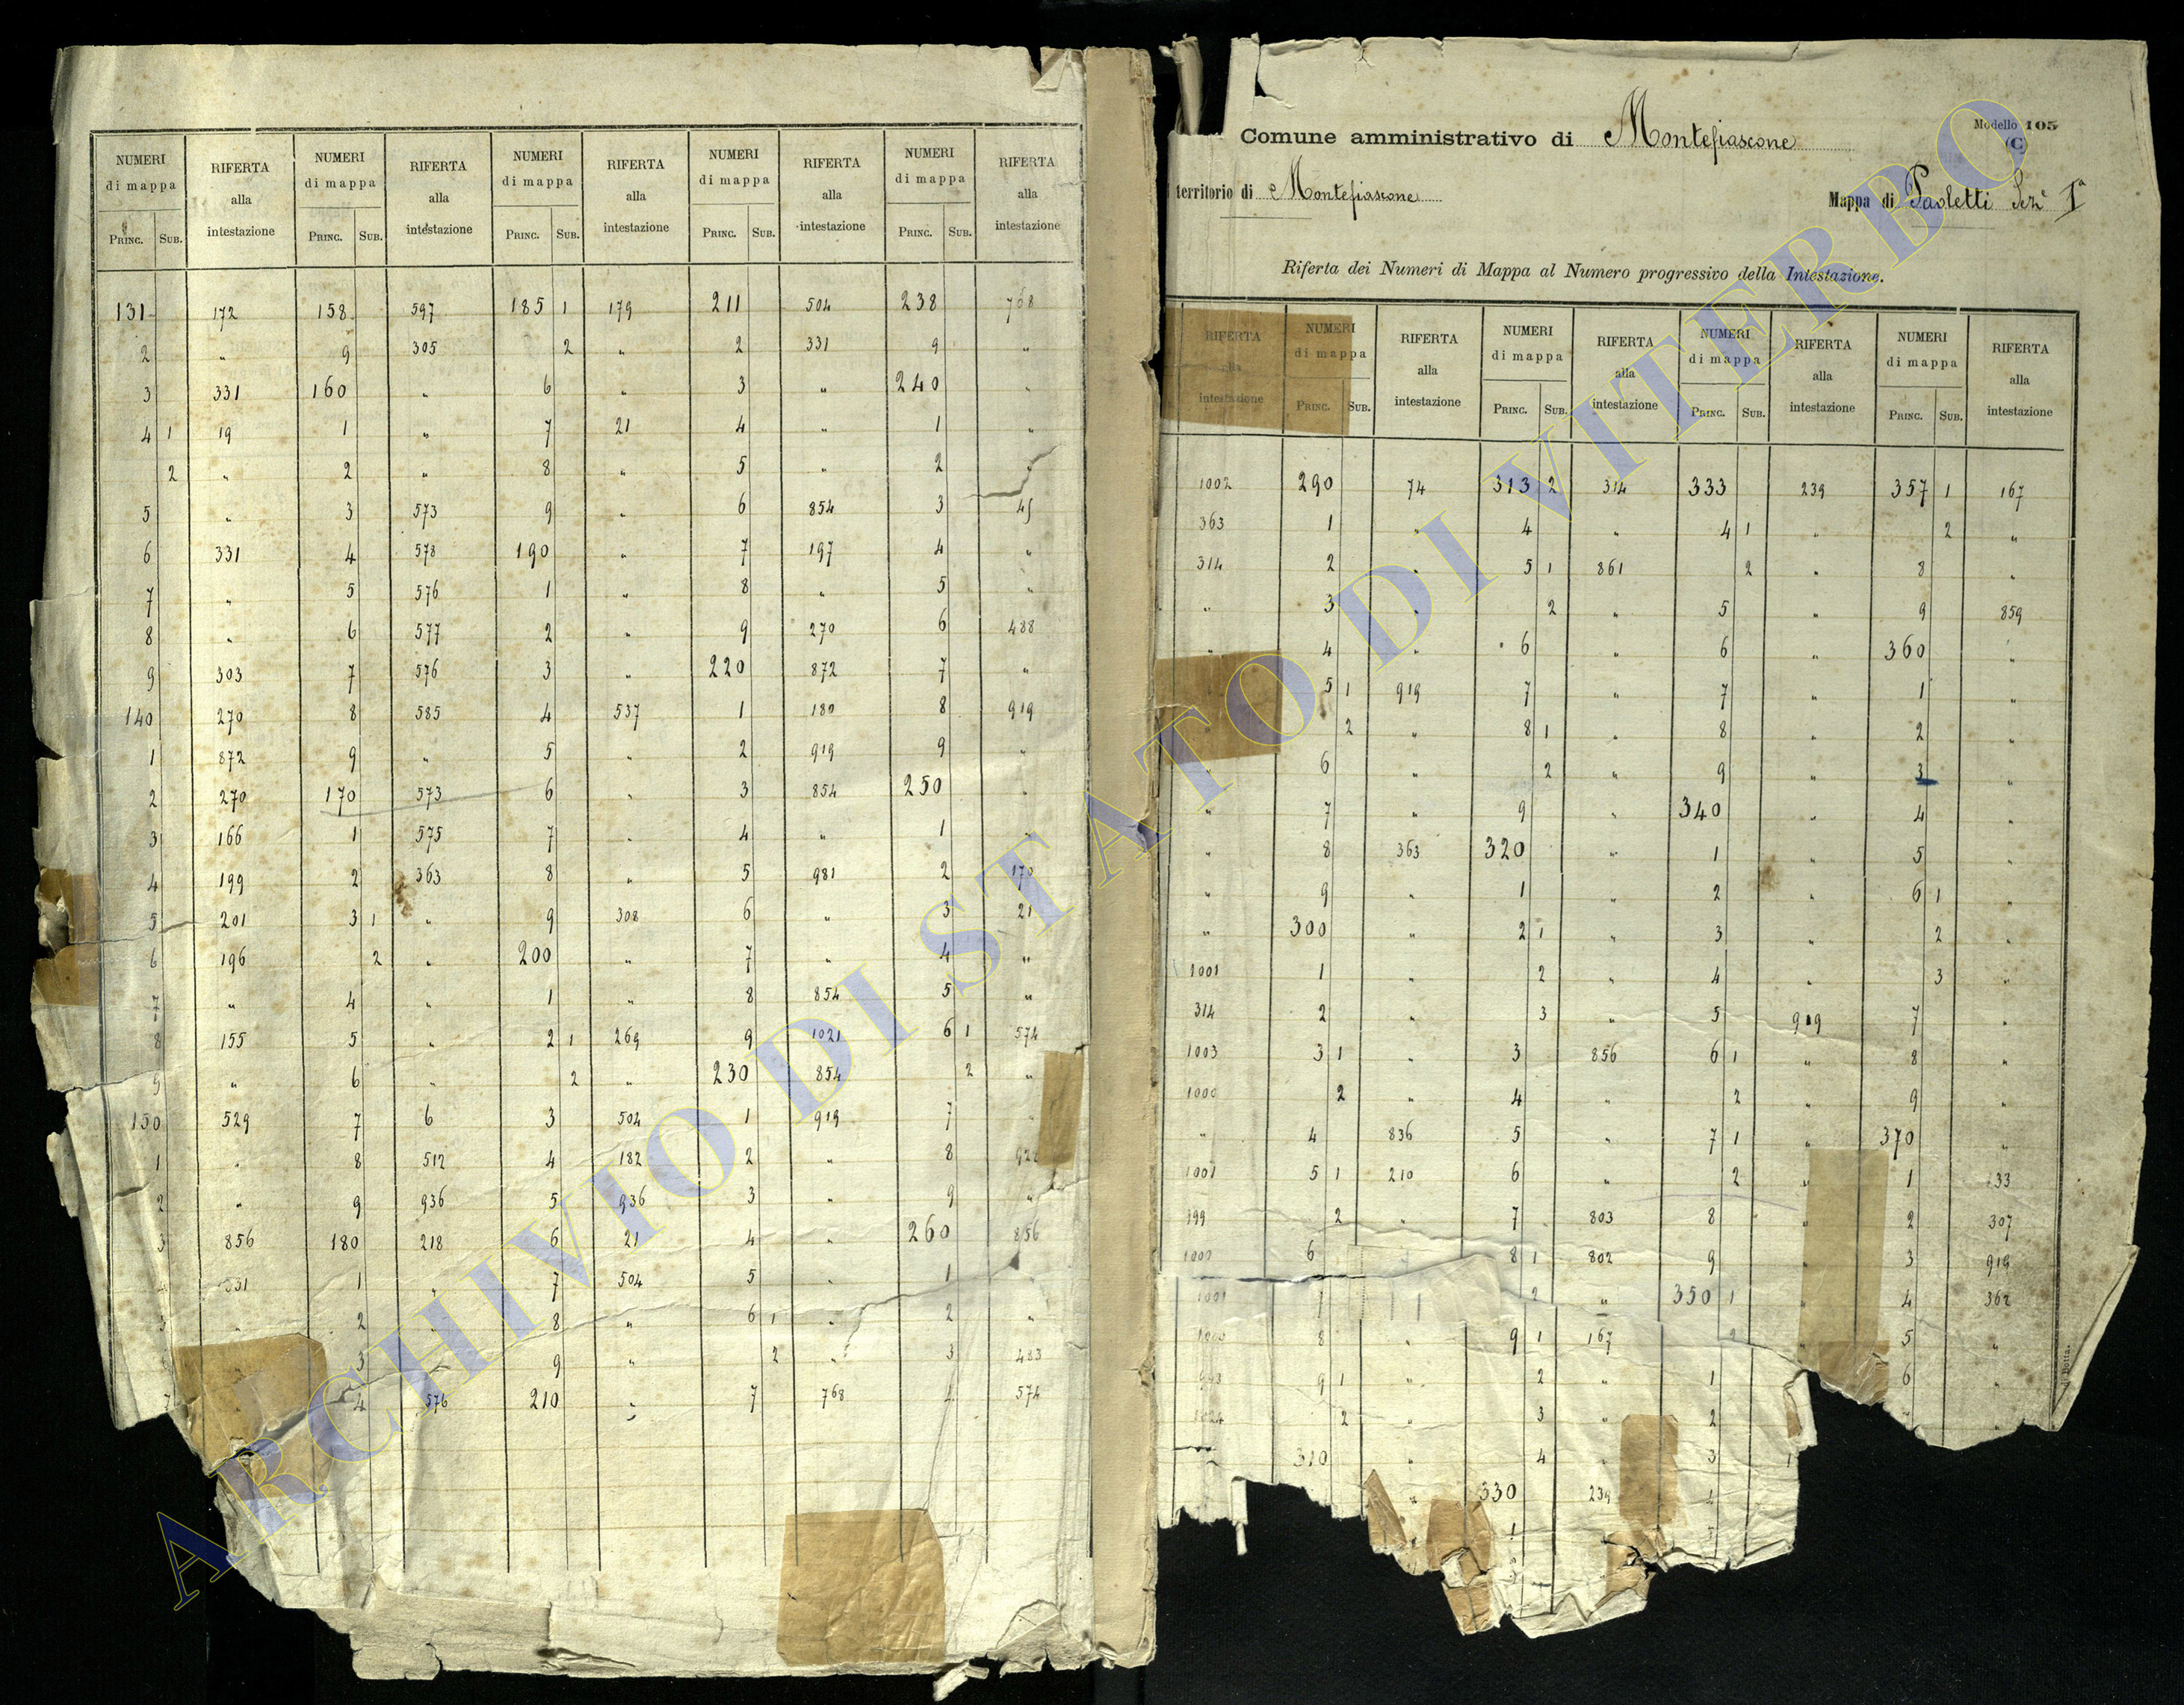 NUMERI di mappa RIFERTA alla intestazione NUMERI di mappa RIFERTA alla intestazione NUMERI di mappa RIFERTA alla intestazione NUMERI di mappa RIFERTA alla intestazione NUMERI di mappa RIFERTA alla intestazione
PRINC. SUB. PRINC. SUB. PRINC. SUB. PRINC. SUB. PRINC. SUB.
131 172 158 597 185 1 179 211 504 238 768
2 „ 9 305 2 „ 2 331 9 „
3 331 160 „ 6 „ 3 „ 240 „
4 1 19 1 „ 7 21 4 „ 1 „
2 „ 2 „ 8 „ 5 „ 2 „
5 „ 3 573 9 „ 6 854 3 45
6 331 4 578 190 „ 7 197 4 „
7 „ 5 576 1 „ 8 „ 5 „
8 „ 6 577 2 „ 9 270 6 488
9 303 7 576 3 „ 220 872 7 „
140 270 8 585 4 537 1 180 8 919
1 872 9 „ 5 „ 2 919 9 „
2 270 170 573 6 „ 3 854 250 „
3 166 1 575 7 „ 4 „ 1 „
4 199 2 363 8 „ 5 981 2 170
5 201 3 1 „ 9 308 6 „ 3 21
6 196 2 „ 200 „ 7 „ 4 „
7 „ 4 „ 1 „ 8 854 5 „
8 155 5 „ 2 1 269 9 1021 6 1 574
9 „ 6 „ 2 „ 230 854 2 „
150 529 7 6 3 504 1 919 7 „
1 „ 8 512 4 182 2 „ 8
2 „ 9 936 5 936 3 „ 9 „
3 856 180 218 6 21 4 „ 260 856
331 1 „ 7 504 5 „ 1 „
„ 2 „ 8 „ 6 1 „ 2 „
3 9 „ 2 „ 3 483
7 4 576 210 „ 7 768 574
Modello 105
(C)
Comune amministrativo di Montefiascone
territorio di Montefiascone Mappa di Paoletti Sezᵉ Iª
Riferta dei Numeri di Mappa al Numero progressivo della Intestazione.
RIFERTA alla intestazione NUMERI di mappa RIFERTA alla intestazione NUMERI di mappa RIFERTA alla intestazione NUMERI di mappa RIFERTA alla intestazione NUMERI di mappa RIFERTA alla intestazione
PRINC. SUB. PRINC. SUB. PRINC. SUB. PRINC. SUB.
1002 290 74 313 2 314 333 239 357 1 167
363 1 „ 4 „ 4 1 „ 2 „
314 2 „ 5 1 861 2 „ 8 „
„ 3 „ 2 „ 5 „ 9 859
„ 4 „ 6 „ 6 „ 360 „
5 1 919 7 „ 7 „ 1 „
2 „ 8 1 „ 8 „ 2 „
„ 6 „ 2 „ 9 „ 3 „
„ 7 „ 9 „ 340 „ 4 „
„ 8 363 320 „ 1 „ 5 „
„ 9 „ 1 „ 2 „ 6 1 „
„ 300 „ 2 1 „ 3 „ 2 „
1001 1 „ 2 „ 4 „ 3 „
314 2 „ 3 „ 5 919 7 „
1003 3 1 „ 3 856 6 1 „ 8 „
1000 2 „ 4 „ 2 „ 9 „
„ 4 836 5 „ 7 1 „ 370 „
1001 5 1 210 6 „ 2 „ 1 33
999 2 „ 7 803 8 „ 2 307
1002 6 8 1 802 9 3 919
1001 2 „ 350 1 „ 4 362
1000 8 „ 9 1 167 2 5 „
9 1 „ 2 „ 1 6 „
2 „ 3 „ 2
310 „ 4 3
„ 330 239
ARCHIVIO DI STATO DI VITERBO